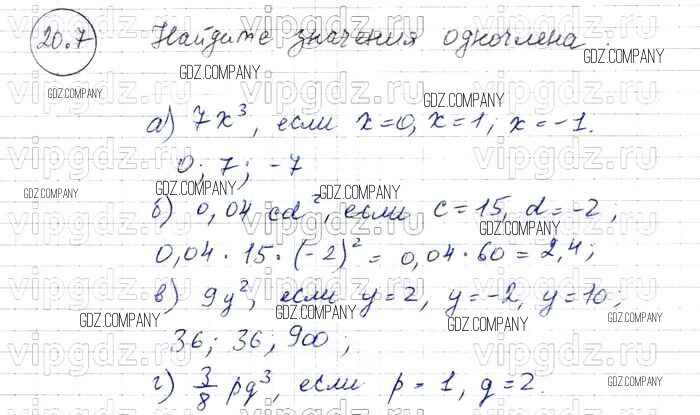 20.7 Найдите значения одночлена.
а) 7x³, если x=0, x=1; x=-1.
0; 7; -7
б) 0,04 cd², если c=15, d=-2,
0,04 · 15 · (-2)² = 0,04 · 60 = 2,4;
в) 9y², если y=2, y=-2, y=10;
36; 36; 900;
г) 3/8 pq³, если p=1, q=2.
vipgdz.ru
GDZ.COMPANY